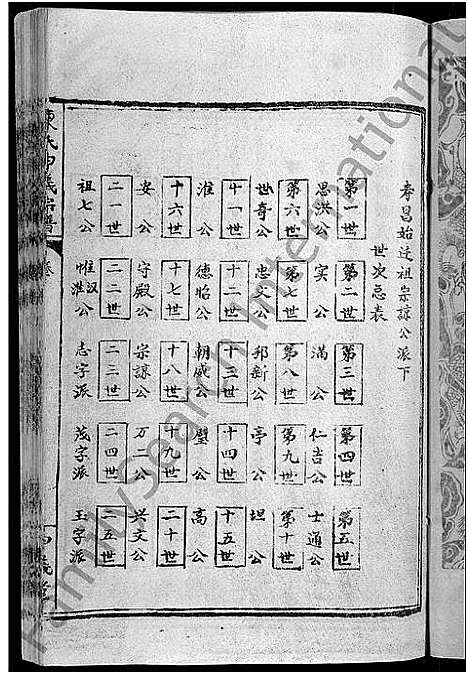 孝昌始迁祖宗諒公派下
世次总表
第一世 第二世 第三世 第四世 第五世
思洪公 实公 满公 仁吉公 士通公
第六世 第七世 第八世 第九世 第十世
世奇公 忠文公 邦新公 亭公 坦公
十一世 十二世 十三世 十四世 十五世
淮公 德怡公 朝威公 璧公 高公
十六世 十七世 十八世 十九世 二十世
安公 守殿公 宗諒公 万二公 兴文公
二一世 二二世 二三世 二四世 二五世
祖七公 惟汉淮公 志字派 茂字派 玉字派
陳氏 義宗譜 卷
義堂
FamilySearch International